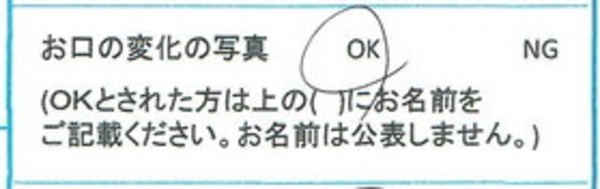 お口の変化の写真 OK NG
(OKとされた方は上の( )にお名前を
ご記載ください。お名前は公表しません。)